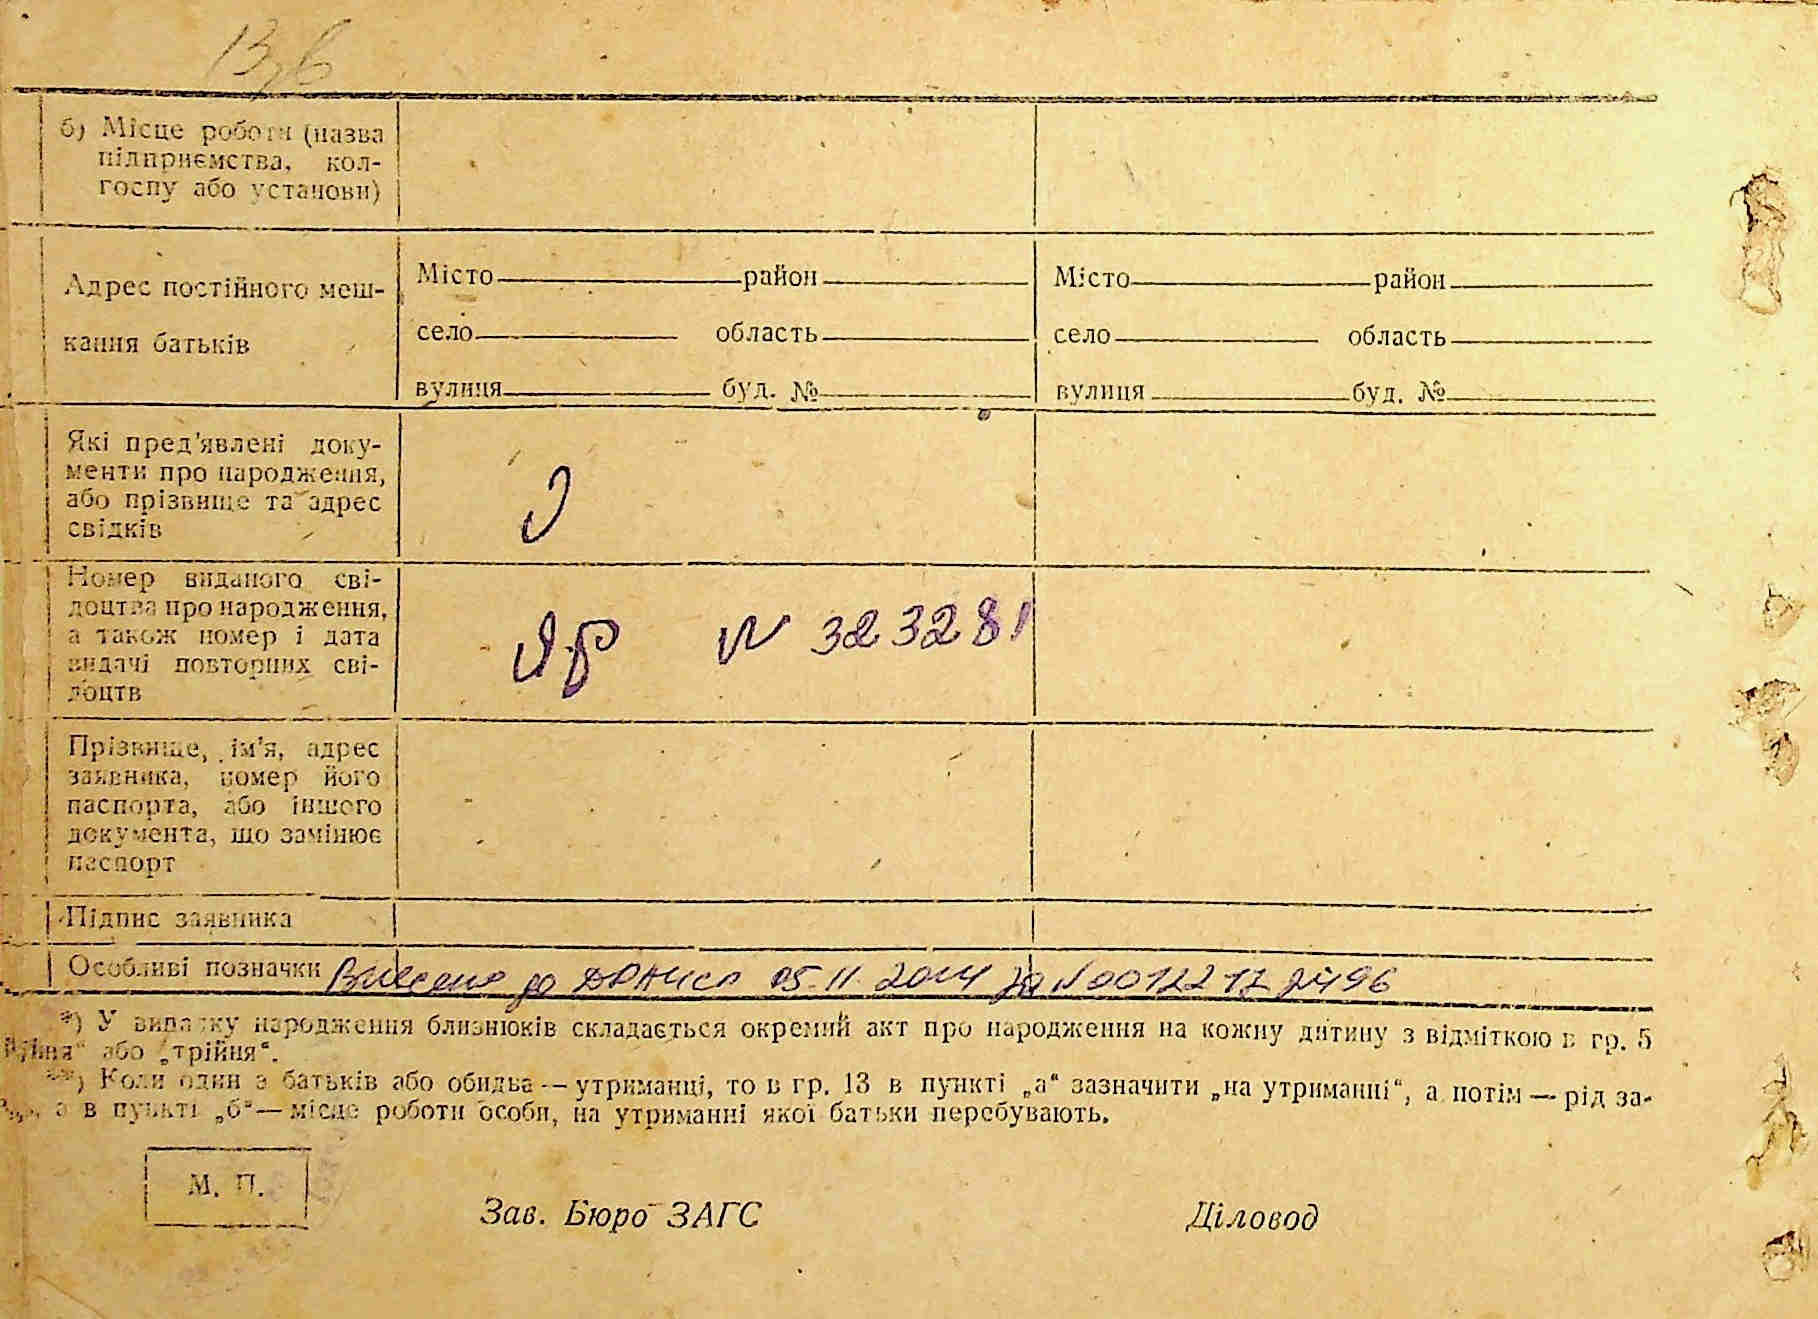 б) Місце роботи (назва
підприємства, кол-
госпу або установи)
Адрес постійного меш-
кання батьків
Місто район
село область
вулиця буд. №
Місто район
село область
вулиця буд. №
Які пред'явлені доку-
менти про народження,
або прізвище та адрес
свідків
Номер виданого сві-
доцтва про народження,
а також номер і дата
видачі повторних сві-
доцтв
N 323281
Прізвище, ім'я, адрес
заявника, номер його
паспорта, або іншого
документа, що замінює
паспорт
Підпис заявника
Особливі позначки Внесено до ДРАЦСГ 05.11.2014 за N 00122172496
*) У випадку народження близнюків складається окремий акт про народження на кожну дитину з відміткою в гр. 5
або „трійня“.
**) Коли один з батьків або обидва — утриманці, то в гр. 13 в пункті „а“ зазначити „на утриманні“, а потім — рід за-
а в пункті „б“ — місце роботи особи, на утриманні якої батьки перебувають.
М. П.
Зав. Бюро ЗАГС
Діловод